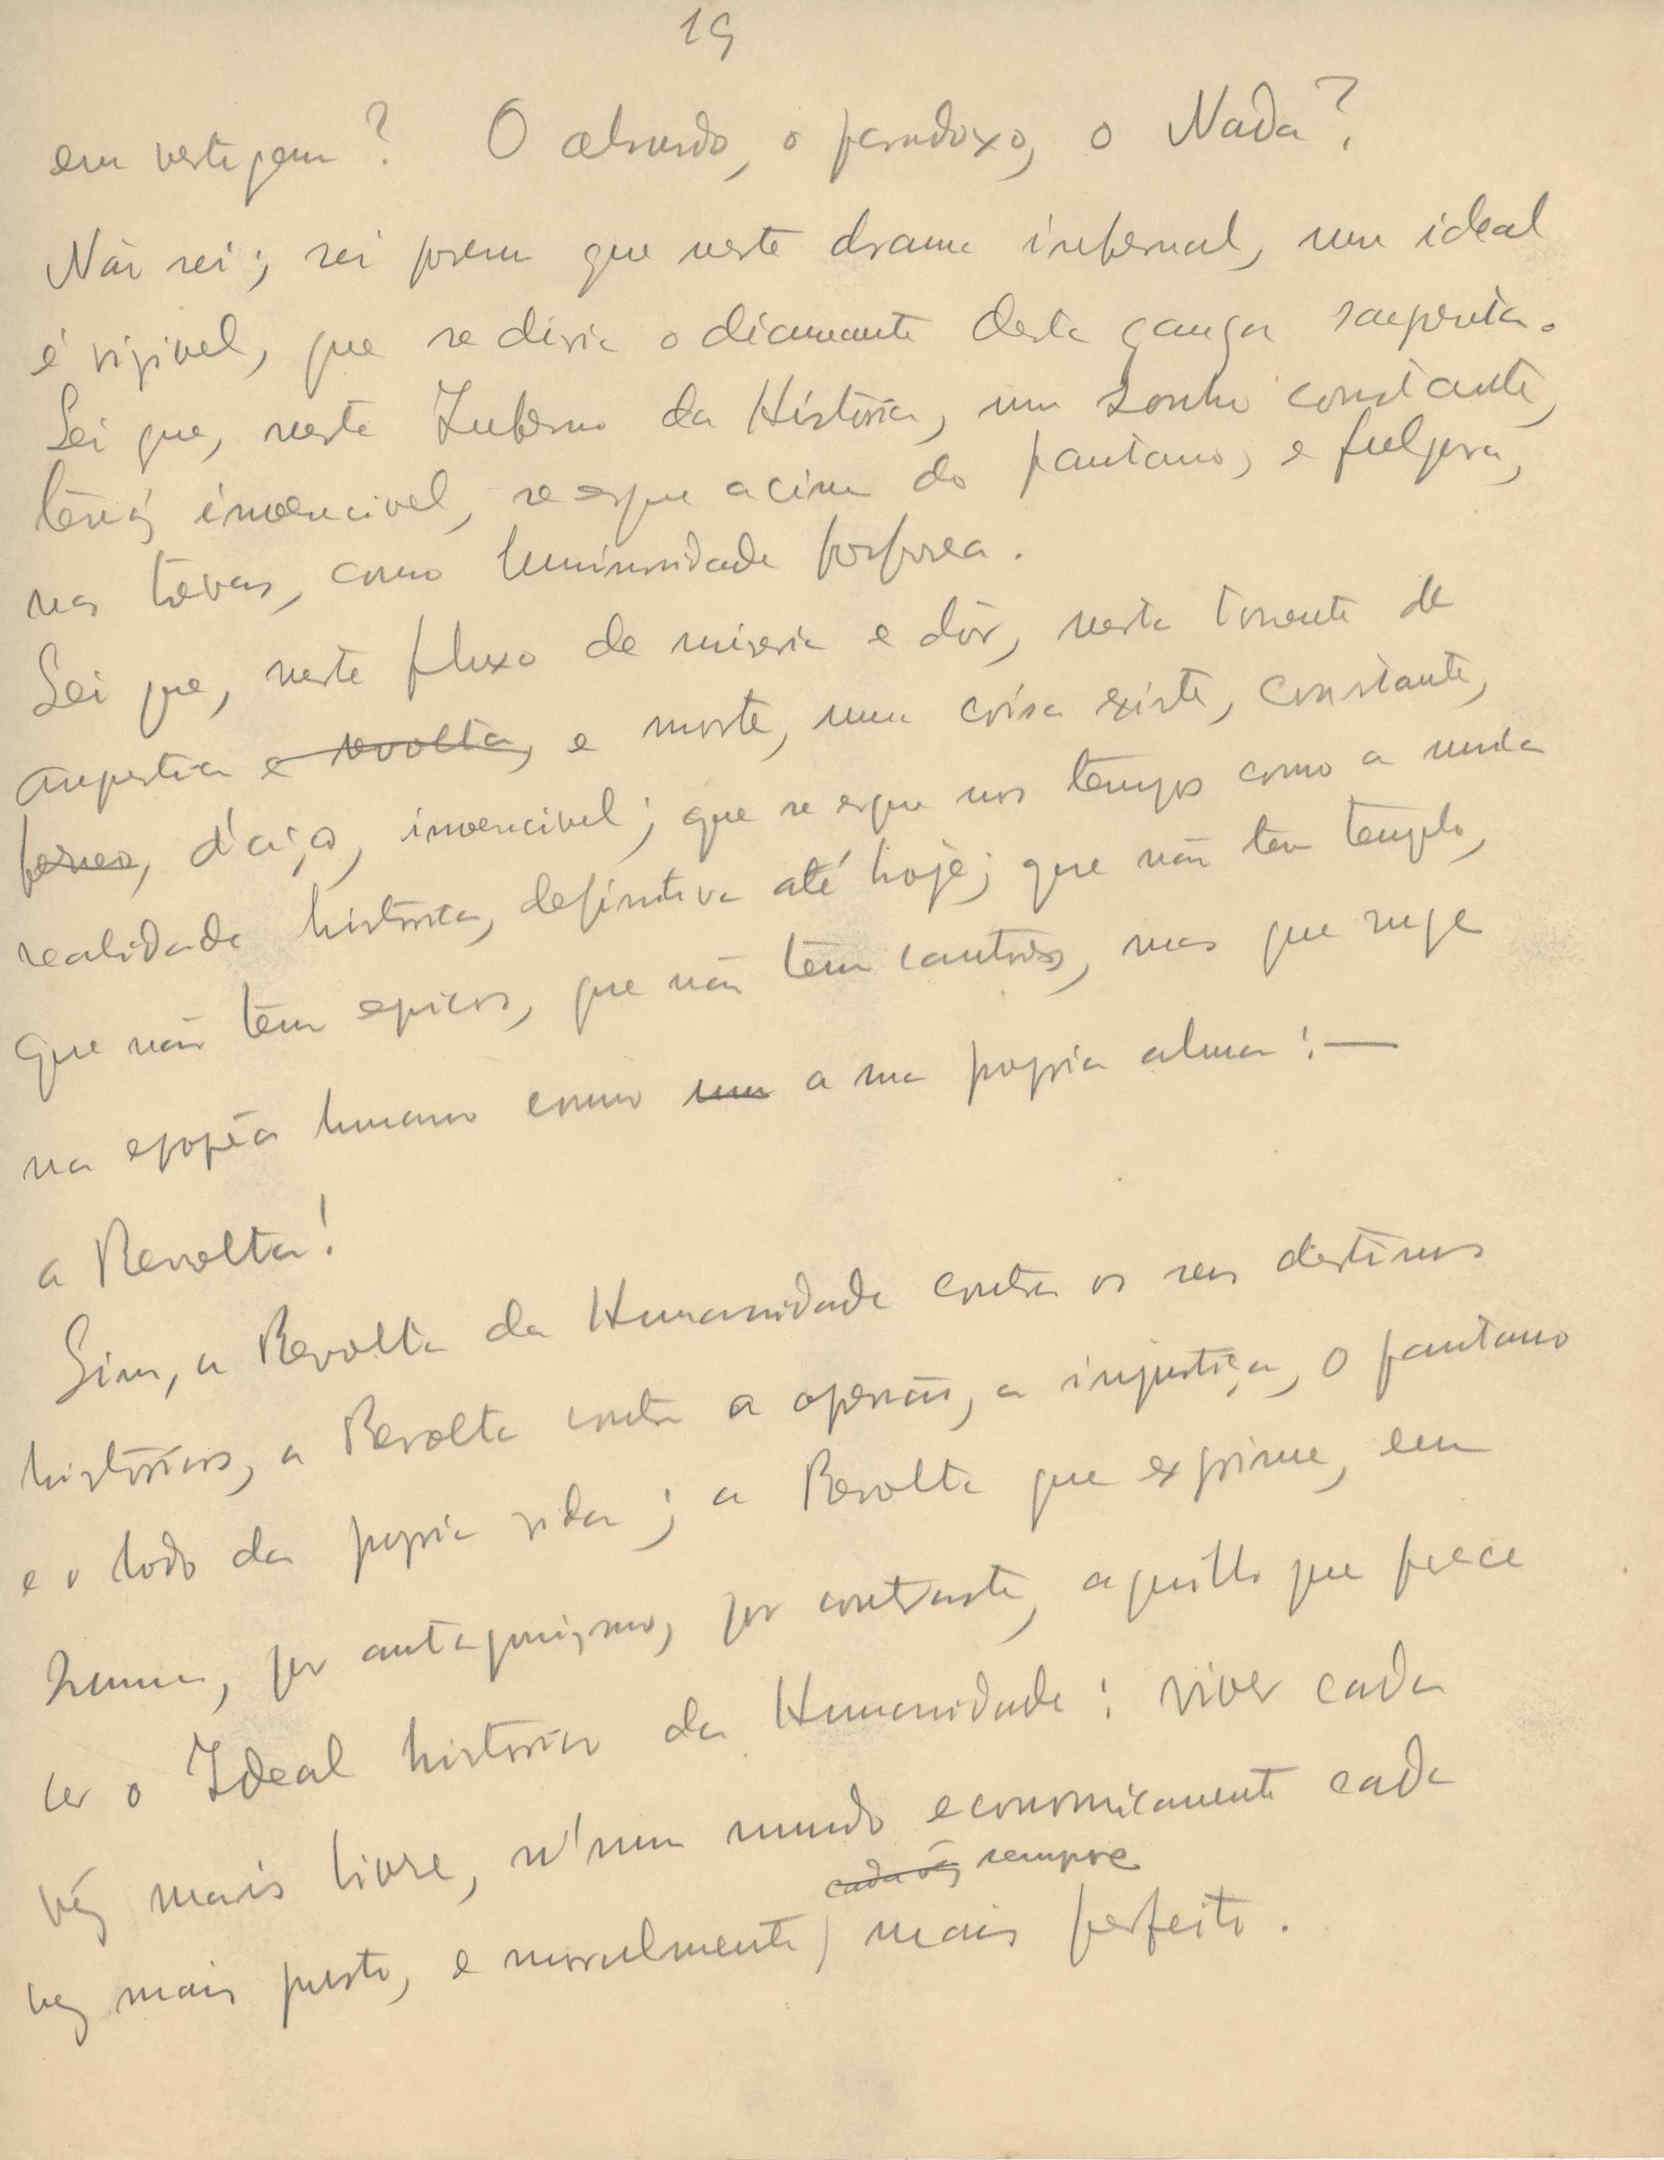 19
em vertigem? O absurdo, o paradoxo, o Nada?
Não sei; sei porem que neste drama infernal, um ideal
é visivel, que se diria o diamante desta ganga sangrenta.
Sei que, neste Inferno da Historia, um sonho constante,
tenáz invencivel, se ergue acima do pantano, e fulgura,
nas trevas, como luminosidade fosforea.
Sei que, neste fluxo de miseria e dôr, nesta torrente de
angustia e revolta, e morte, uma coisa existe, constante,
ferrea, d'aço, invencivel; que se ergue nos tempos como a unica
realidade historica, definitiva até hoje; que não tem templo,
que não têm epicos, que não têm cantores, mas que ruge
na epopêa humana como um a sua propria alma: —
a Revolta!
Sim, a Revolta da Humanidade contra os seus destinos
historicos, a Revolta contra a opressão, a injustiça, o pantano
e o lodo da propria vida; a Revolta que exprime, em
suma, por antagonismo, por contraste, aquillo que parece
ser o Ideal historico da Humanidade: viver cada
vêz mais livre, n'um mundo economicamente cada
cada vêz sempre
vez mais justo, e moralmente mais perfeito.